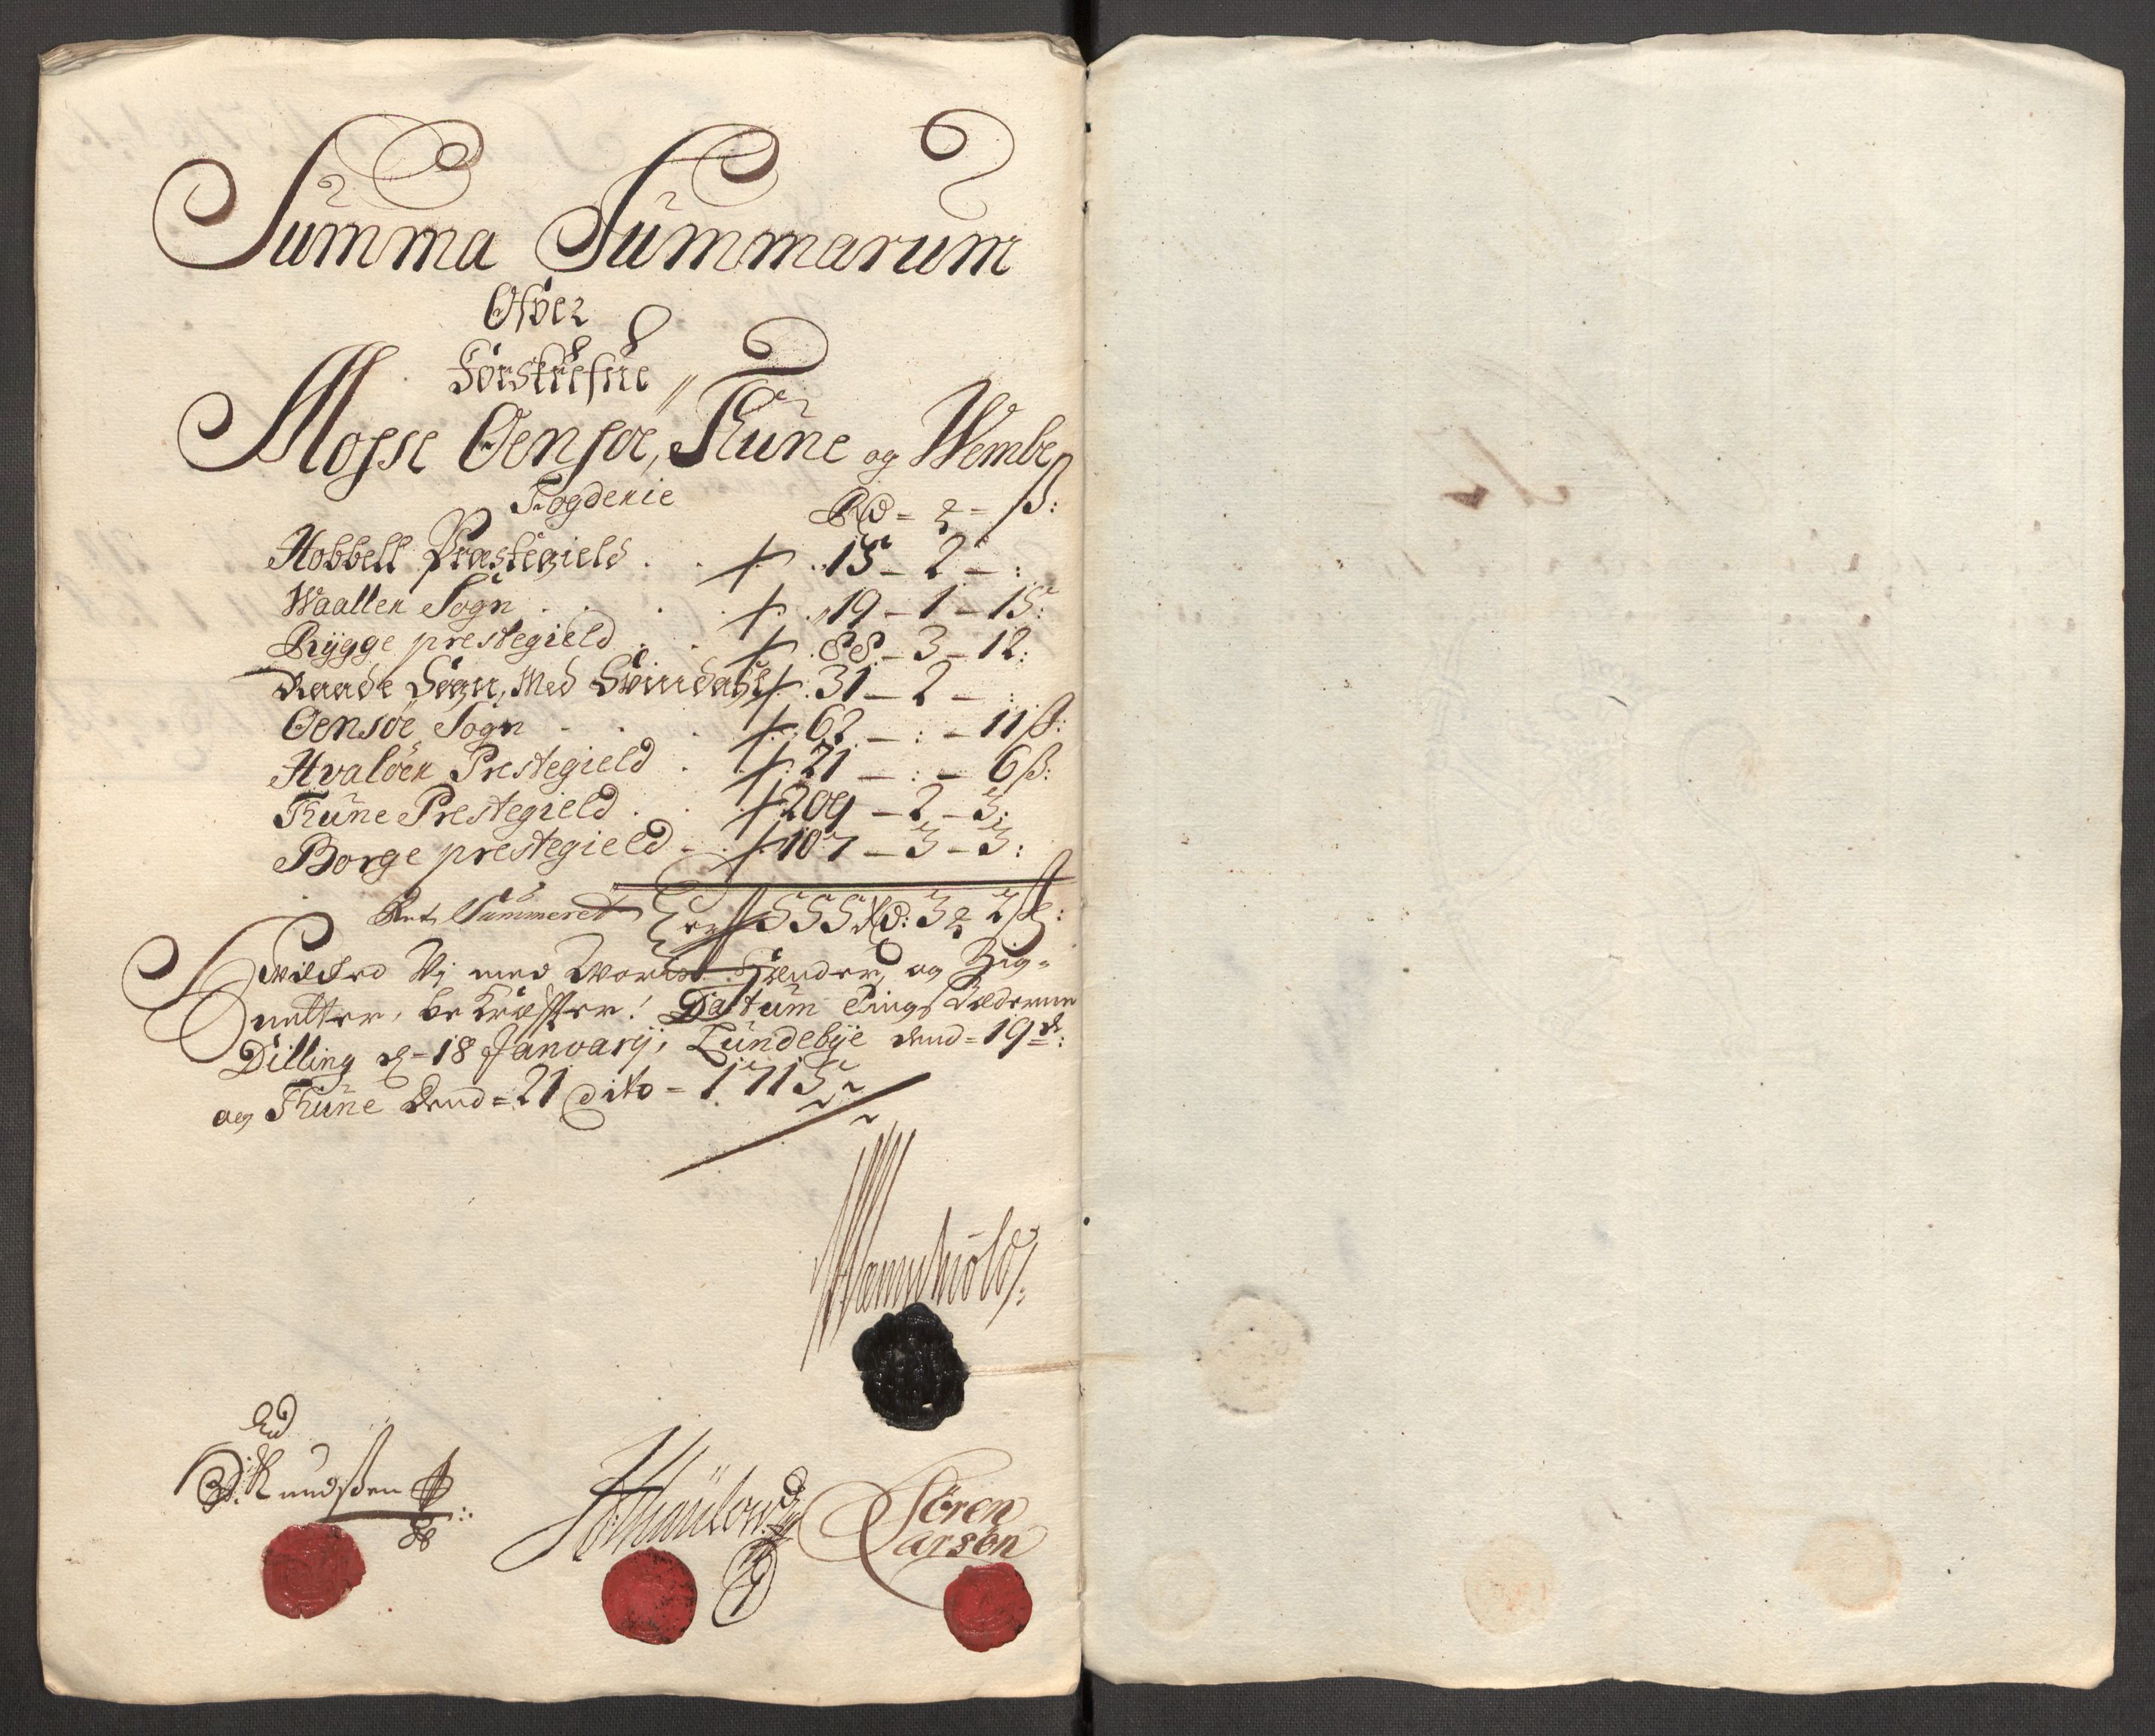 Summa Summarum
Ofver
Forskrefne
Mosse Oensøe, Thune og Wembe
Fogderie Rd = ß:
Hobbell Præstegield . . 15 - 2 - :
Waaller Sogn . . . 19 - 1 - 15:
Rÿgge prestegield . . 88 - 3 - 12:
Raade Sogn, Med Svindahl 31 - 2 - :
Oensøe Sogn . . 62 - : - 11 ß:
Hvaløer Prestegield . 21 - : - 6 ß:
Thune Prestegield . . 209 - 2 - 3:
Borge prestegield - 107 - 3 - 3:
Ret Summeret Er 555 Rd: 3 2 ß:
Hvilked Vi med Vores Hænder og Zig-
netter, bekræffter! Dattum Tings Stæderne
Dilling d - 18 Januarÿ, Lundebÿe dend = 19de:
og Thune dend = 21 Dito - 1715
Knudsßen
Sören
Larsøn